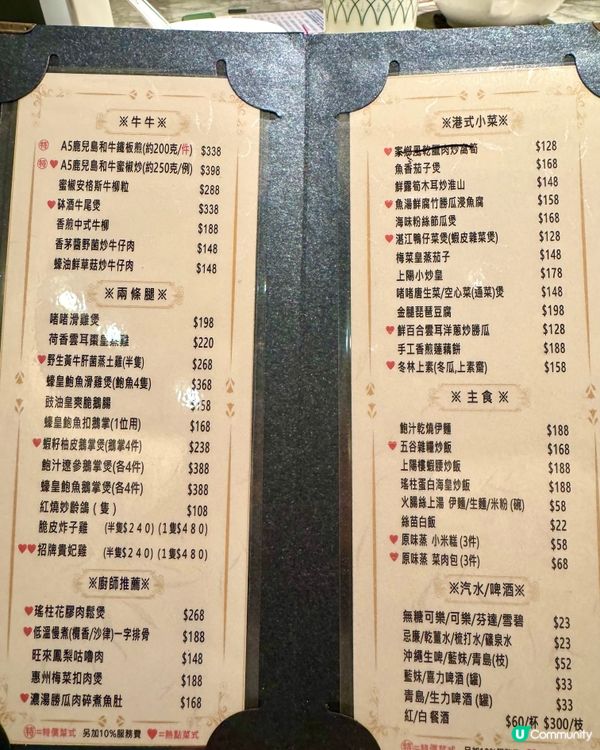 ※牛牛※
特 A5鹿兒島和牛鐵板煎(約200克/件) $338
特♥A5鹿兒島和牛蜜椒炒(約250克/例) $398
蜜椒安格斯牛柳粒 $288
♥砵酒牛尾煲 $338
香煎中式牛柳 $188
香茅醬野菌炒牛仔肉 $148
蠔油鮮草菇炒牛仔肉 $148
※兩條腿※
啫啫滑雞煲 $198
荷香雲耳棗皇蒸雞 $220
♥野生黃牛肝菌蒸土雞(半隻) $268
蠔皇鮑魚滑雞煲(鮑魚4隻) $368
豉油皇爽脆鵝腸
蠔皇鮑魚扣鵝掌(1位用) $168
♥蝦籽柚皮鵝掌煲(鵝掌4件) $238
鮑汁遼參鵝掌煲(各4件) $388
蠔皇鮑魚鵝掌煲(各4件) $388
紅燒炒齡鴿(隻) $108
脆皮炸子雞 (半隻$240) (1隻$480)
♥♥招牌貴妃雞 (半隻$240) (1隻$480)
※廚師推薦※
♥瑤柱花膠肉鬆煲 $268
♥低溫慢煮(欖香/沙律)一字排骨 $188
旺來鳳梨咕嚕肉 $148
惠州梅菜扣肉煲 $188
♥濃湯勝瓜肉碎煮魚肚 $168
特=特價菜式 另加10%服務費 ♥=熱點菜式
※港式小菜※
♥家鄉風乾臘肉炒萵筍 $128
魚香茄子煲 $168
鮮露筍木耳炒淮山 $148
♥魚湯鮮腐竹勝瓜浸魚腐 $158
海味粉絲節瓜煲 $168
♥湛江鴨仔菜煲(蝦皮雜菜煲) $128
梅菜皇蒸茄子 $148
上陽小炒皇 $178
啫啫唐生菜/空心菜(通菜)煲 $148
金腿琵琶豆腐 $198
♥鮮百合雲耳洋蔥炒勝瓜 $128
手工香煎蓮藕餅 $188
♥冬林上素(冬瓜,上素齋) $158
※ 主食 ※
鮑汁乾燒伊麵 $188
♥五谷雜糧炒飯 $168
上陽樓蝦膠炒飯 $188
瑤柱蛋白海皇炒飯 $188
火腿絲上湯 伊麵/生麵/米粉 (碗) $58
絲苗白飯 $22
♥原味蒸 小米糕 (3件) $58
♥原味蒸 菜肉包 (3件) $68
※汽水/啤酒※
無糖可樂/可樂/芬達/雪碧 $23
忌廉/乾薑水/梳打水/礦泉水 $23
沖繩生啤/藍妹/青島(枝) $52
藍妹/喜力啤酒 (罐) $33
青島/生力啤酒 (罐) $33
紅/白 餐酒 $60/杯 $300/枝
特=特價菜式
U Community